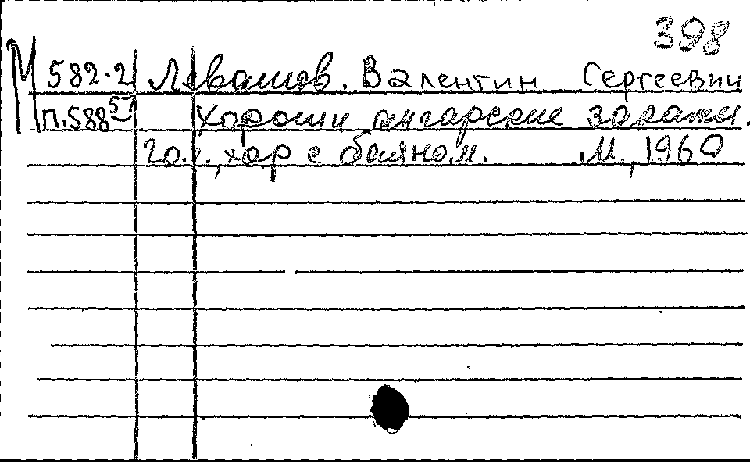 398
М 582-2 Левашов. Валентин Сергеевич
п.588 Хороши ангарские закаты.
Гол., хор с баяном. М., 1960